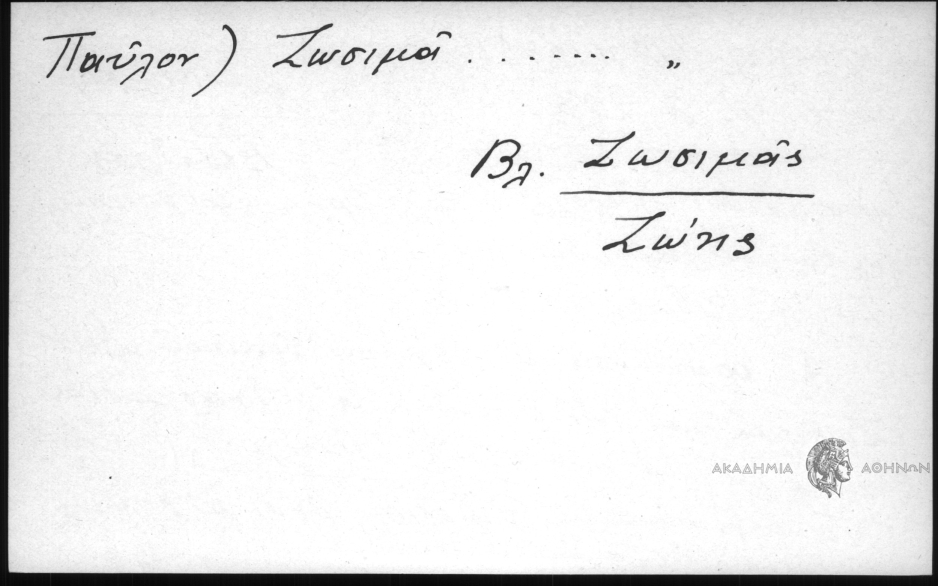 Παῦλον) Ζωσιμᾶ . . . . . . . . „
Βλ. Ζωσιμᾶς
Ζώης
ΑΚΑΔΗΜΙΑ ΑΘΗΝΩΝ